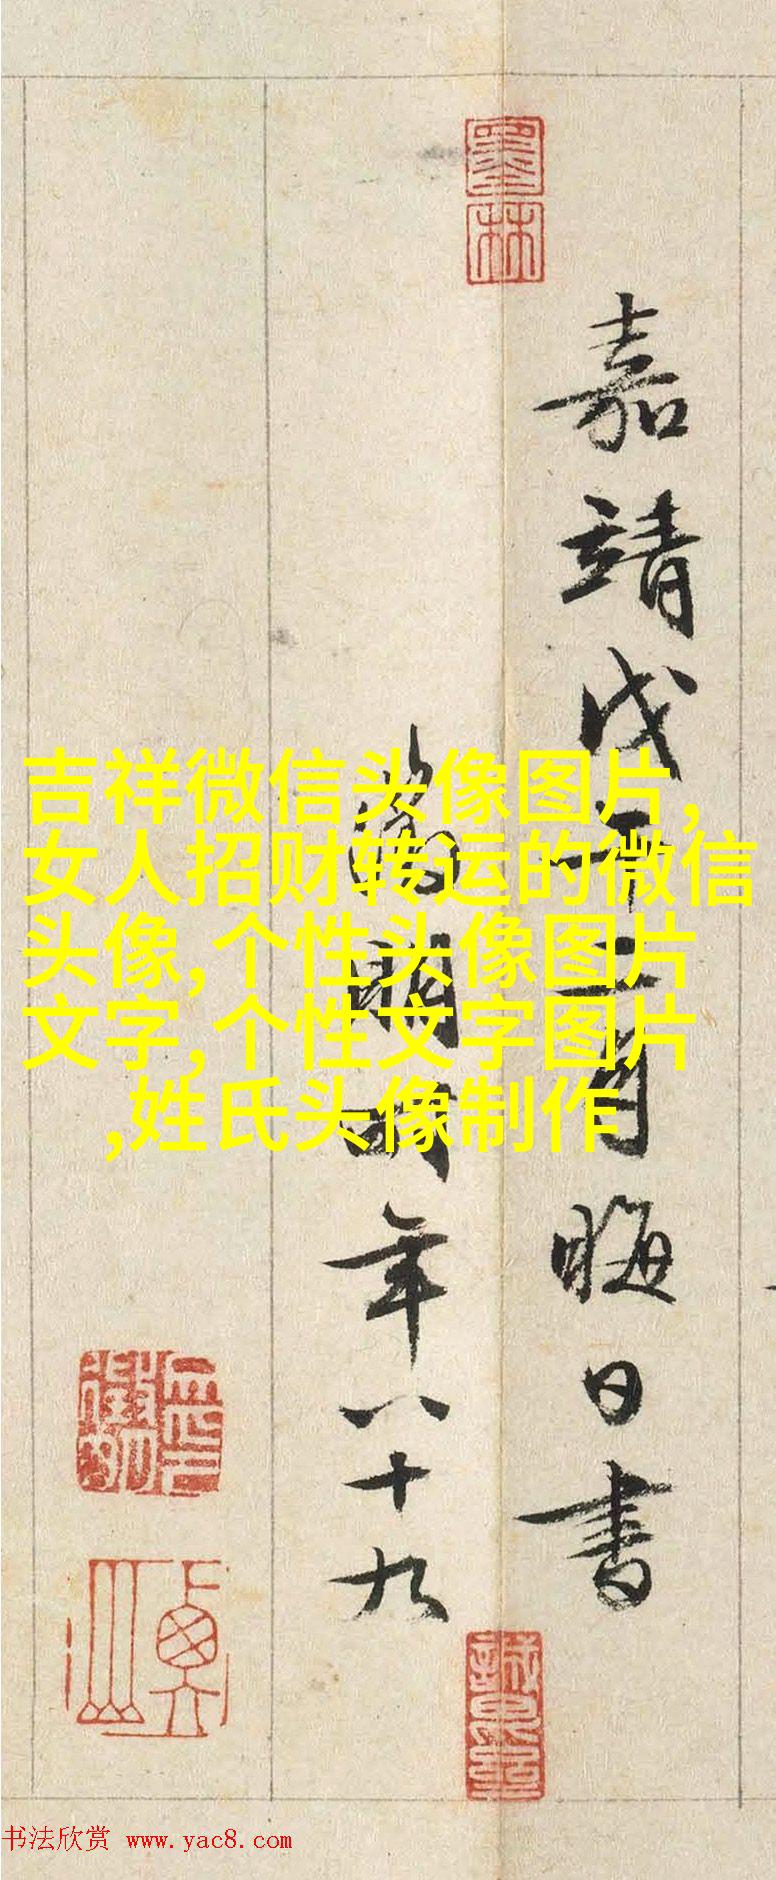 墨林
嘉靖戊午二月晦日書
徵明時年八十九
衡山
吉祥微信头像图片,
女人招财转运的微信
头像,个性头像图片
文字,个性文字图片
,姓氏头像制作
书法欣赏 www.yac8.com